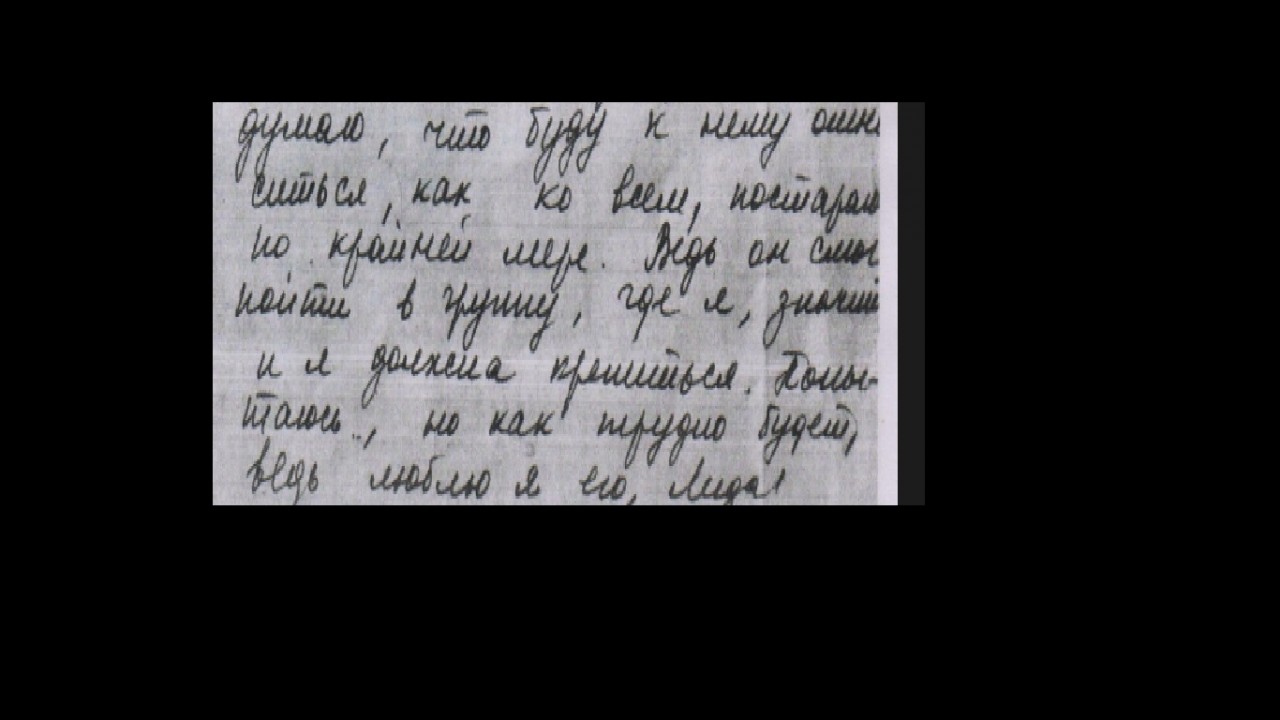 думаю, что буду к нему отно
ситься, как ко всем, постараю
по крайней мере. Ведь он смог
пойти в группу, где я, значит
и я должна крепиться. Попы-
таюсь, но как трудно будет,
ведь люблю я его, Лида!